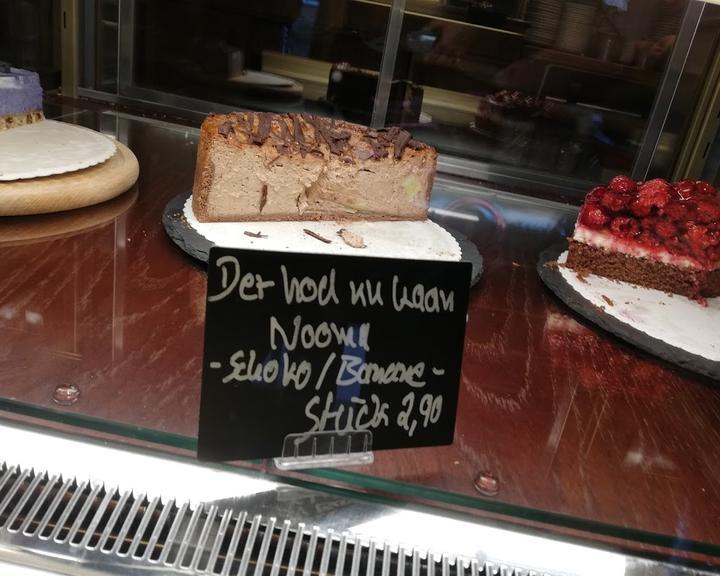 Der hod nu kaan
Nooma
-Schoko/Banane-
Stück 2,90